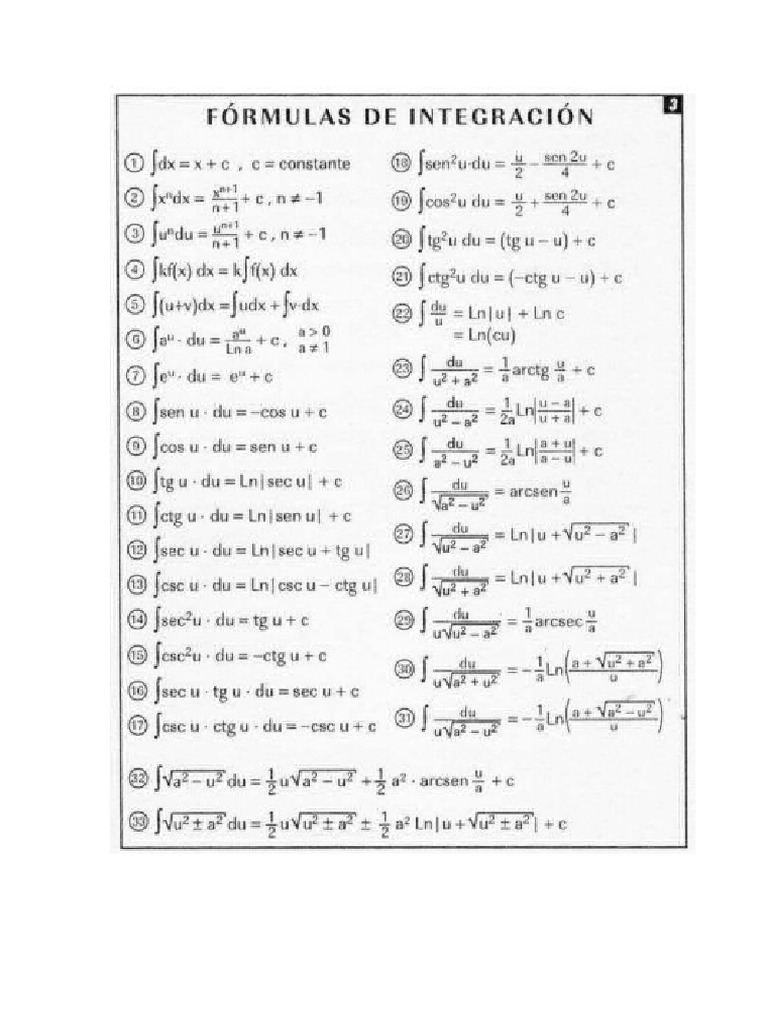 3
FÓRMULAS DE INTEGRACIÓN
① ∫dx = x + c , c = constante
② ∫xⁿdx = xⁿ⁺¹/n + 1 + c , n ≠ −1
③ ∫uⁿdu = uⁿ⁺¹/n + 1 + c , n ≠ −1
④ ∫kf(x) dx = k∫f(x) dx
⑤ ∫(u+v)dx = ∫udx + ∫v·dx
⑥ ∫aᵘ · du = aᵘ/Ln a + c , a > 0 a ≠ 1
⑦ ∫eᵘ · du = eᵘ + c
⑧ ∫sen u · du = −cos u + c
⑨ ∫cos u · du = sen u + c
⑩ ∫tg u · du = Ln|sec u| + c
⑪ ∫ctg u · du = Ln|sen u| + c
⑫ ∫sec u · du = Ln|sec u + tg u|
⑬ ∫csc u · du = Ln|csc u − ctg u|
⑭ ∫sec²u · du = tg u + c
⑮ ∫csc²u · du = −ctg u + c
⑯ ∫sec u · tg u · du = sec u + c
⑰ ∫csc u · ctg u · du = −csc u + c
⑱ ∫sen²u·du = u/2 − sen 2u/4 + c
⑲ ∫cos²u du = u/2 + sen 2u/4 + c
⑳ ∫tg²u du = (tg u − u) + c
㉑ ∫ctg²u du = (−ctg u − u) + c
㉒ ∫du/u = Ln|u| + Ln c
= Ln(cu)
㉓ ∫ du/u² + a² = 1/a arctg u/a + c
㉔ ∫ du/u² − a² = 1/2a Ln|u − a/u + a| + c
㉕ ∫ du/a² − u² = 1/2a Ln|a + u/a − u| + c
㉖ ∫ du/√a² − u² = arcsen u/a
㉗ ∫ du/√u² − a² = Ln|u + √u² − a²|
㉘ ∫ du/√u² + a² = Ln|u + √u² + a²|
㉙ ∫ du/u√u² − a² = 1/a arcsec u/a
㉚ ∫ du/u√a² + u² = −1/a Ln(a + √u² + a²/u)
㉛ ∫ du/u√a² − u² = −1/a Ln(a + √a² − u²/u)
㉜ ∫√a² − u² du = 1/2 u√a² − u² + 1/2 a² · arcsen u/a + c
㉝ ∫√u² ± a² du = 1/2 u√u² ± a² ± 1/2 a² Ln|u + √u² ± a²| + c